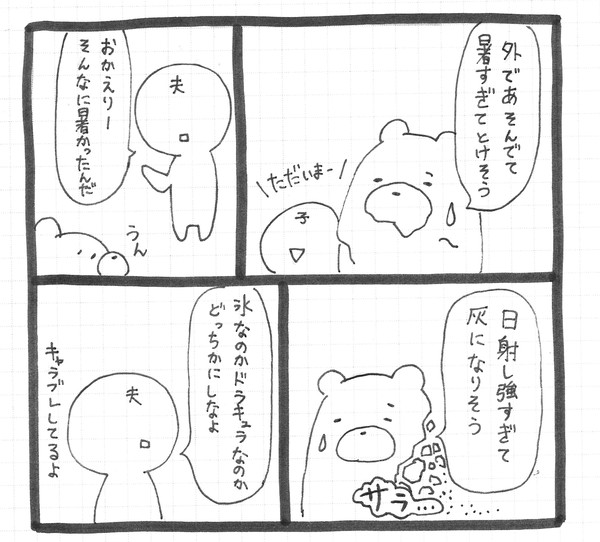 外であそんでて
暑すぎてとけそう
\ただいまー/
子
おかえりー
そんなに暑かったんだ
夫
うん
日射し強すぎて
灰になりそう
サラ
氷なのかドラキュラなのか
どっちかにしなよ
夫
キャラブレしてるよ